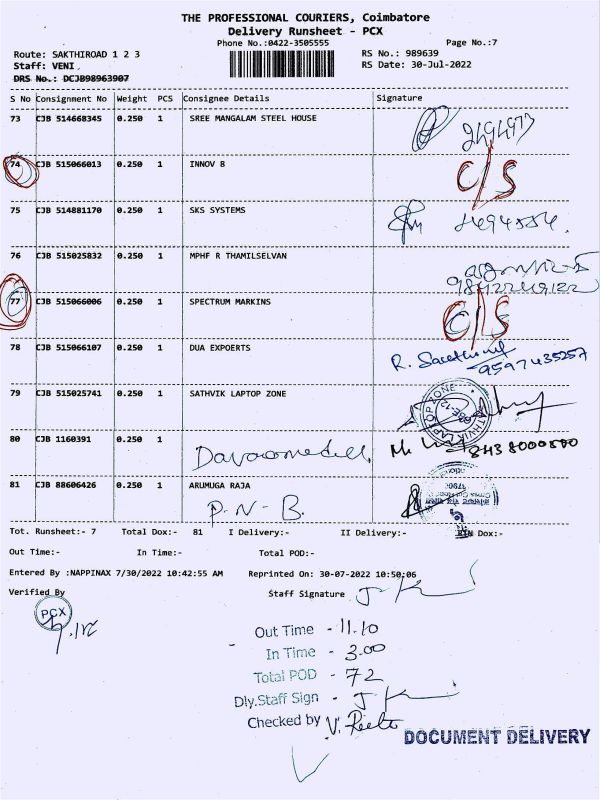 THE PROFESSIONAL COURIERS, Coimbatore
Delivery Runsheet - PCX
Phone No.:0422-3505555 Page No.:7
Route: SAKTHIROAD 1 2 3 RS No.: 989639
Staff: VENI. RS Date: 30-Jul-2022
DRS No.: DCJB98963907
S No Consignment No Weight PCS Consignee Details Signature
73 CJB 514668345 0.250 1 SREE MANGALAM STEEL HOUSE
74 CJB 515066013 0.250 1 INNOV 8 C/S
75 CJB 514881170 0.250 1 SKS SYSTEMS
76 CJB 515025832 0.250 1 MPHF R THAMILSELVAN
77 CJB 515066006 0.250 1 SPECTRUM MARKINS C/S
78 CJB 515066107 0.250 1 DUA EXPOERTS
9597435257
79 CJB 515025741 0.250 1 SATHVIK LAPTOP ZONE
80 CJB 1160391 0.250 1
81 CJB 88606426 0.250 1 ARUMUGA RAJA
P.N-B.
Tot. Runsheet:- 7 Total Dox:- 81 I Delivery:- II Delivery:- Dox:-
Out Time:- In Time:- Total POD:-
Entered By :NAPPINAX 7/30/2022 10:42:55 AM Reprinted On: 30-07-2022 10:50:06
Verified By Staff Signature
PCX
Out Time - 11.10
In Time - 3.00
Total POD - 72
Dly.Staff Sign -
Checked by
DOCUMENT DELIVERY